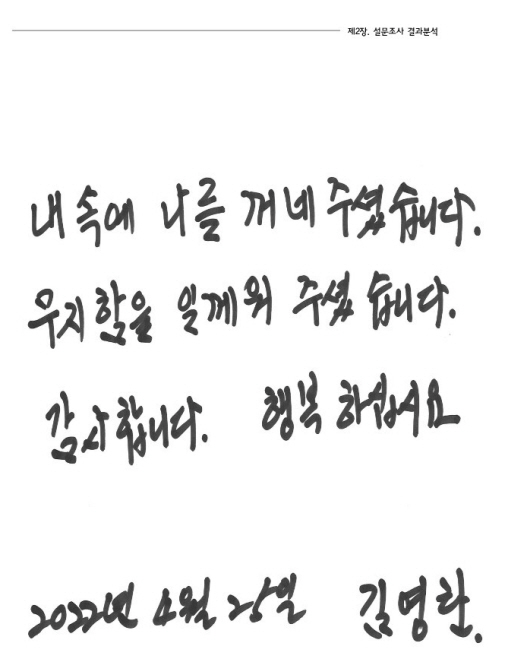 제2장. 설문조사 결과분석
내 속에 나를 꺼내 주셨습니다.
무지함을 일깨워 주셨습니다.
감사합니다. 행복하십시요
2022년 4월 25일 김영환.